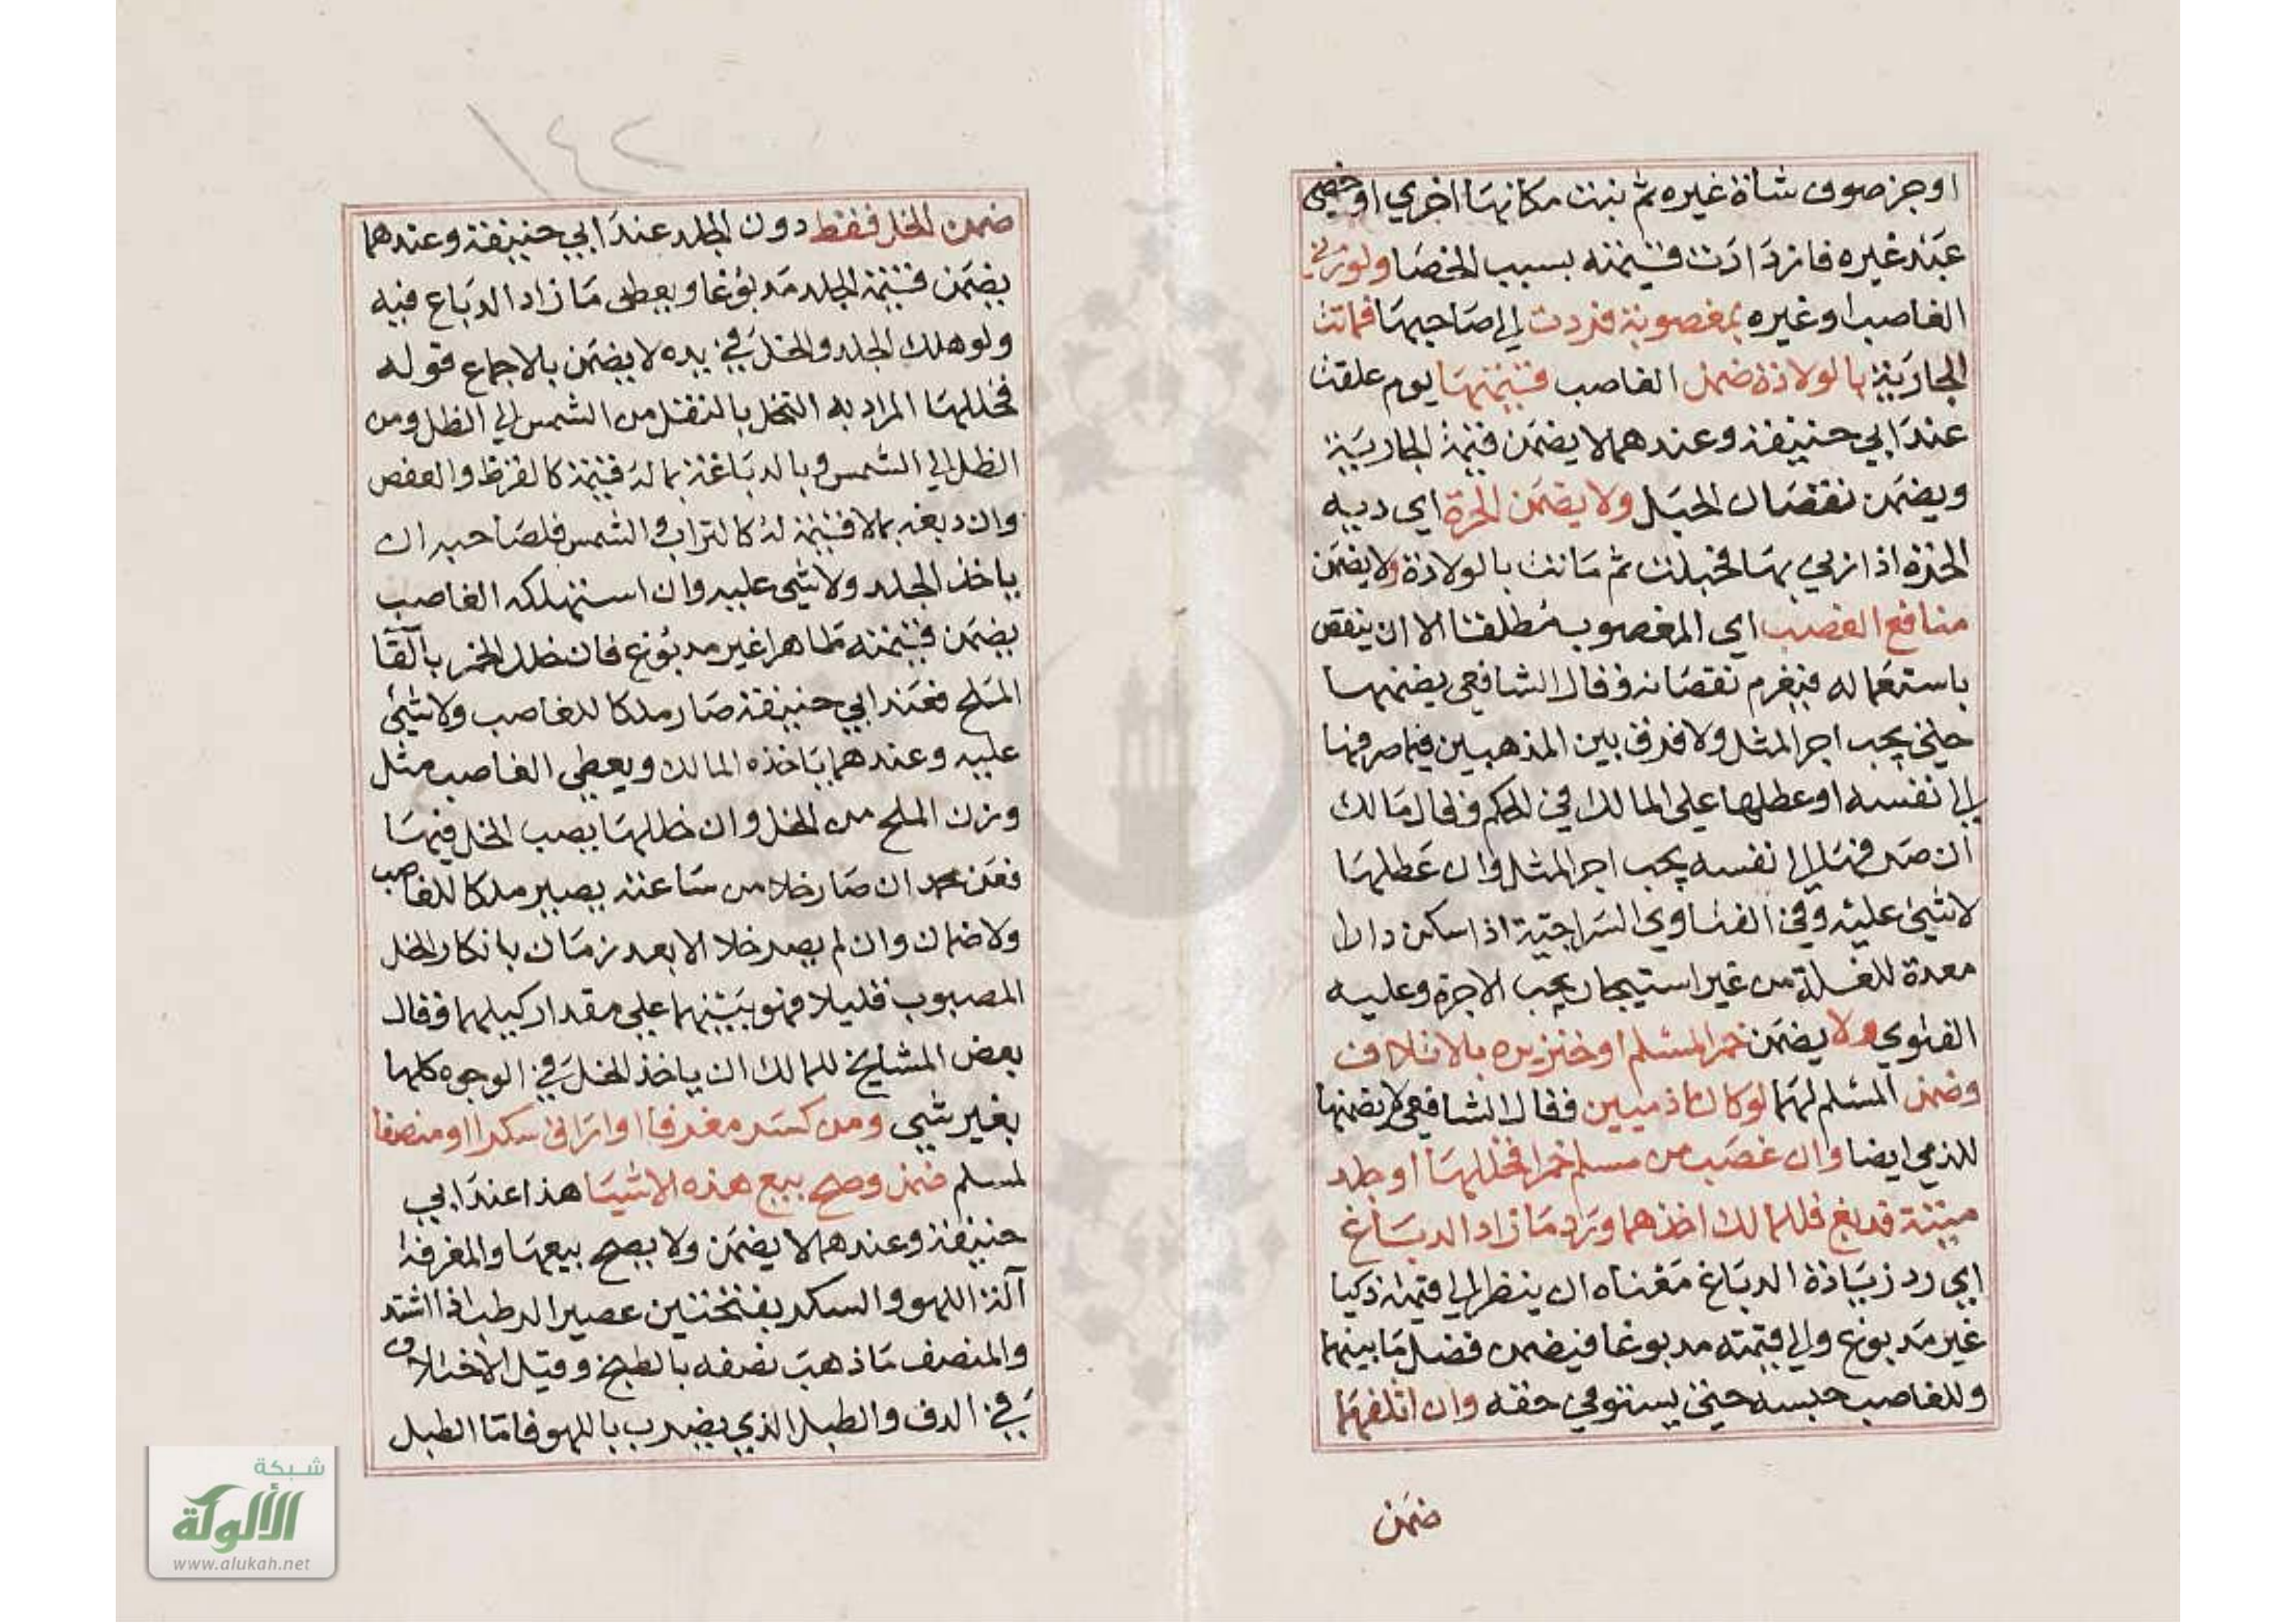 اوجز صوف شاة غيره ثم نبتت مكانها اخري او خصي
عبد غيره فازدادت قيمته بسبب الخصا ولو زني
الغاصب او غيره بمغصوبة فردت الي صاحبها فماتت
الجارية بالولادة ضمن الغاصب قيمتها يوم علقت
عند ابي حنيفة وعندهما لا يضمن قيمة الجارية
ويضمن نقصان الحبل ولا يضمن الحرة اي دية
الحرة اذا زني بها فحبلت ثم ماتت بالولادة ولا يضمن
منافع الغصب اي المغصوب مطلقا الا ان ينقص
باستعماله فيغرم نقصانه وقال الشافعي يضمنها
حتي يجب اجر المثل ولا فرق بين المذهبين فيما صرفها
الي نفسه او عطلها علي المالك في الحكم وقال مالك
ان صرفها الي نفسه يجب اجر المثل وان عطلها
لا شيئ عليه وفي الفتاوي السراجية اذا سكن دارا
معدة للغلة من غير استيجار يجب الاجرة وعليه
الفتوي ولا يضمن خمر المسلم او خنزيره بالاتلاف
وضمن المسلم لهما لو كانا لذميين فقال الشافعي لا يضمنها
للذمي ايضا وان غصب من مسلم خمرا فخللها او جلد
ميتة فدبغ فللمالك اخذهما ورد ما زاد الدباغ
اي رد زيادة الدباغ معناه ان ينظر الي قيمته ذكيا
غير مدبوغ والي قيمته مدبوغا فيضمن فضل ما بينهما
وللغاصب حبسه حتي يستوفي حقه وان اتلفهما
ضمن
١٤٢
ضمن الخل فقط دون الجلد عند ابي حنيفة وعندهما
يضمن قيمة الجلد مدبوغا ويعطي ما زاد الدباغ فيه
ولو هلك الجلد والخل في يده لا يضمن بالاجماع قوله
فخللها المراد به التخلل بالنقل من الشمس الي الظل ومن
الظل الي الشمس وبالدباغة بما له قيمة كالقرظ والعفص
وان دبغه بما لا قيمة له كالتراب والشمس فلصاحبه ان
ياخذ الجلد ولا شيئ عليه وان استهلكه الغاصب
يضمن قيمته طاهرا غير مدبوغ فان خلل الخمر بالقا
الملح فعند ابي حنيفة صار ملكا للغاصب ولا شيئ
عليه وعندهما ياخذه المالك ويعطي الغاصب مثل
وزن الملح من الخل وان خللها بصب الخل فيها
فعن محمد ان صار خلا من ساعته يصير ملكا للغاصب
ولا ضمان وان لم يصر خلا الا بعد زمان بان كان الخل
المصبوب قليلا فهو بينهما علي مقدار كيلهما وقال
بعض المشايخ للمالك ان ياخذ الخل في الوجوه كلها
بغير شيئ ومن كسر معزفا او اراق سكرا او منصفا
لمسلم ضمن وصح بيع هذه الاشيا هذا عند ابي
حنيفة وعندهما لا يضمن ولا يصح بيعها والمعزفة
آلة اللهو والسكر بفتحتين عصير الرطب اذا اشتد
والمنصف ما ذهب نصفه بالطبخ وقيل الاختلاف
في الدف والطبل الذي يضرب باللهو فاما الطبل
شبكة
الألوكة
www.alukah.net